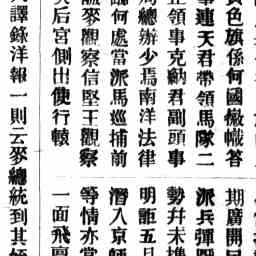 色旗係何國徽幟答
事連天君帶領馬隊二
正領事克納君副頭事
周總辦少焉南洋法律
臨何處當派馬巡捕前
麥觀察信堅王觀察
天后宮側出使行轅
譯錄洋報一則云麥總統到其
期廣開
派兵彈
勢幷未
明詎五月
潛入京師
等情亦當
一面飛稟